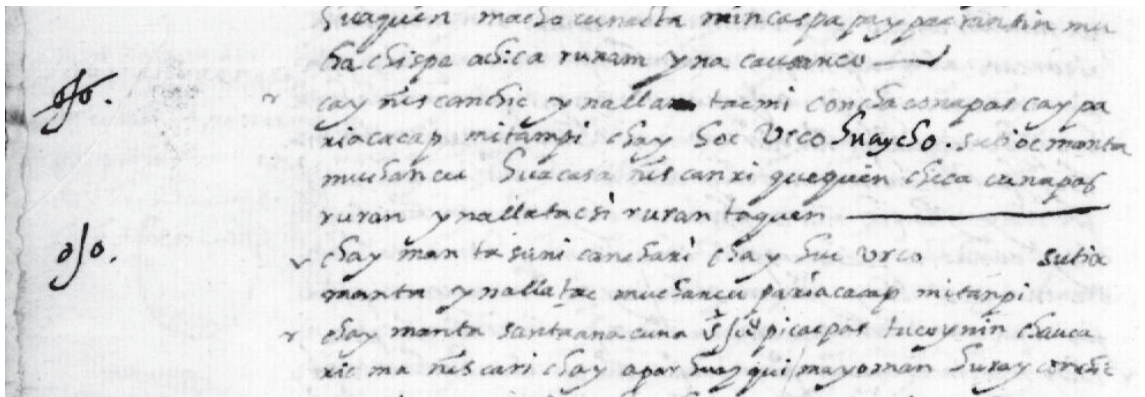 huaquen machacunacta mincaspa paypac rantin mu
cha chispa achica runam yna causancu
ojo. cay ñiscanchic ynallatacmi conchaconapas caypa
riacacap mitampi chay hoc Vrco huaycho. sutiocmanta
muchancu huacasa ñiscanri quequen chica cunapas
ruran ynallatacsi rurantaquen
ojo. chay manta suni canchari chay huc vrco sutio
manta ynallatac muchancu pariacacap mitanpi
chay manta santaanacuna picacpas tucoynin chauca
ric ma ñiscari chay apar huayqui mayoman huray